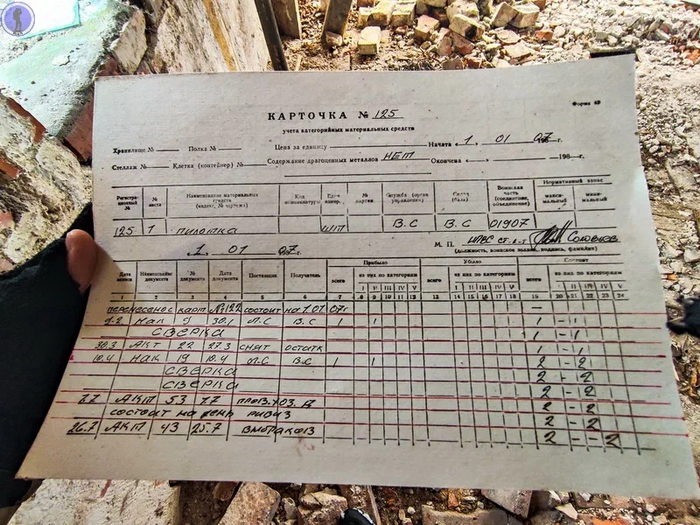 Форма 4Р
КАРТОЧКА № 125
учета категорийных материальных средств
Хранилище № Полка № Цена за единицу Начата « 1 » 01 07 198 г.
Стеллаж № Клетка (контейнер) № Содержание драгоценных металлов НЕТ Окончена « » 198 г.
Регистрационный № № листа Наименование материальных средств Код номенклатуры Един. измер. № партии Служба (орган управления) Склад (база) Воинская часть (соединение, объединение) Нормативный запас
максимальный минимальный
125 1 Пилотка ШТ В.С В.С 01907
1. 01 07 г. М. П. Соловьев
(должность, воинское звание, подпись, фамилия)
Дата записи Наименование документа № документа Дата документа Поставщик Получатель Прибыло Убыло Состоит
всего из них по категориям всего из них по категориям всего из них по категориям
I II III IV V I II III IV V I II III IV V
1 2 3 4 5 6 7 8 9 10 11 12 13 14 15 16 17 18 19 20 21 22 23 24
перенесено с карт № 122 состоит на 1.01.07г —
2.2 нак 9 30.1 П.С В.С 1 1 1 - 1
СВЕРКА 1 - 1
30.3 АКТ 22 27.3 снят остатк 1 - 1
10.4 нак 19 10.4 П.С В.С 1 1 2 - 2
СВЕРКА 2 - 2
СВЕРКА 2 - 2
7.7 АКТ 53 7.7 2 - 2
состоит на день ривиз 2 - 2
26.7 АКТ 43 25.7 2 - 2